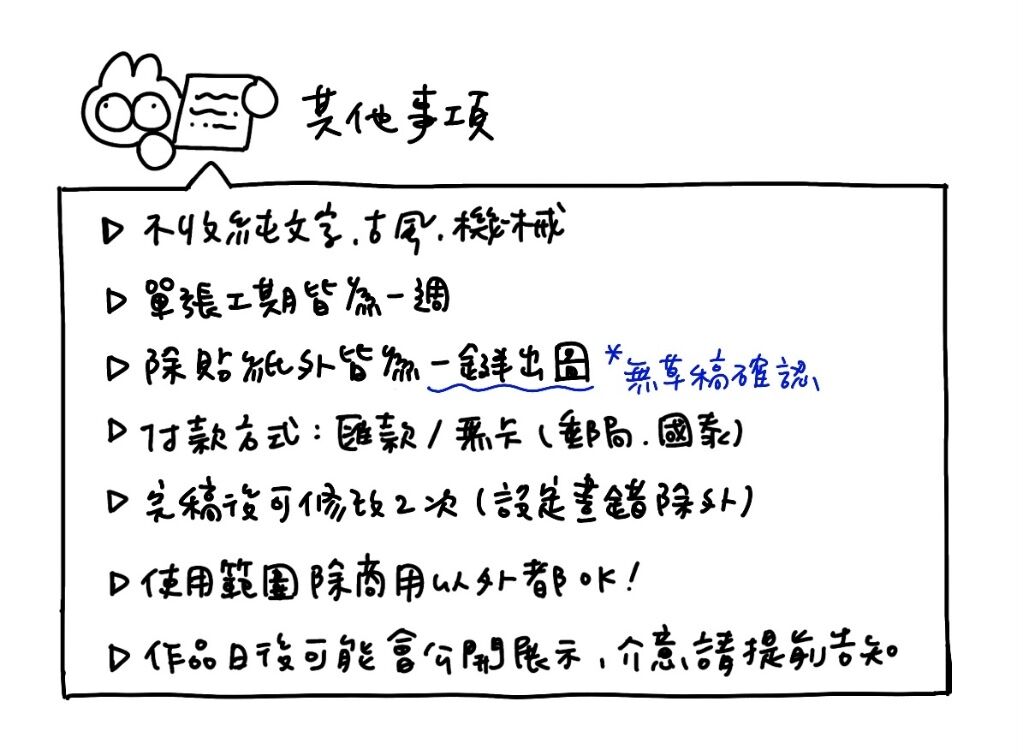 其他事項
▷ 不收純文字、古風、機械
▷ 單張工期皆為一週
▷ 除貼紙外皆為一鍵出圖 *無草稿確認、
▷ 付款方式：匯款/無卡(郵局、國泰)
▷ 完稿後可修改2次(設定畫錯除外)
▷ 使用範圍除商用以外都OK!
▷ 作品日後可能會公開展示、介意請提前告知